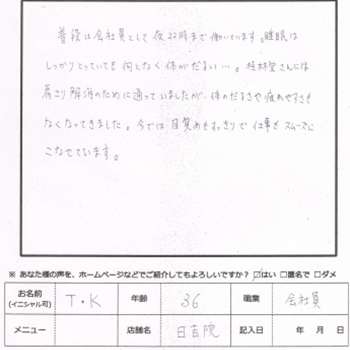 普段は会社員として夜22時まで働いています。睡眠は
しっかりとっていても何となく体がだるい…。桂林堂さんには
肩こり解消のために通っていましたが、体のだるさや疲れやすさも
なくなってきました。今では目覚めもすっきりで仕事もスムーズに
こなせています。
※ あなた様の声を、ホームページなどでご紹介してもよろしいですか？ ☑はい □匿名で □ダメ
お名前 (イニシャル可) T・K 年齢 36 職業 会社員
メニュー 店舗名 日吉院 記入日 年 月 日